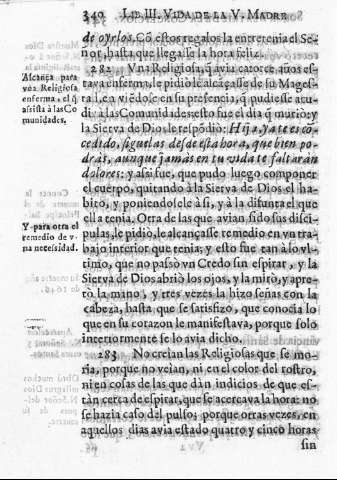 340 LIB. III. VIDA DE LA V. MADRE
de oyrlos. Cō estos regalos la entretenia el Se-
nor, hasta que llegasse la hora feliz.
282 Vna Religiosa, q̄ avia catorce años es-
tava enferma, le pidiò le alcāçasse de su Mages-
tad, en viēdose en su presencia, q̄ pudiesse acu-
dir à las Comunidades: esto fue el dia q̄ muriò: y
la Sierva de Dios le respōdiò: Hija, ya te es cō-
cedido, siguelas desde esta hora, que bien po-
dràs, aunque jamàs en tu vida te faltaràn
dolores: y assi fue, que pudo luego componer
el cuerpo, quitando à la Sierva de Dios el ha-
bito, y poniendosele à si, y à la difunta el que
ella tenia. Otra de las que avian sido sus disci-
pulas, le pidiò, le alcançasse remedio en vn tra-
bajo interior que tenia; y esto fue tan à lo vl-
timo, que no passò vn Credo sin espirar, y la
Sierva de Dios abriò los ojos, y la mirò, y apre-
tò la mano, y tres vezes la hizo señas con la
cabeza, hasta que se satisfizo, que conocia lo
que en su corazon le manifestava, porque solo
interiormente se lo avia dicho.
283 No creian las Religiosas que se mo-
ria, porque no veian, ni en el color del rostro,
ni en cosas de las que dàn indicios de que es-
tàn cerca de espirar, que se acercava la hora: no
se hazia caso del pulso; porque otras vezes, en
aquellos dias avia estado quatro y cinco horas
sin
Alcança para
vna Religiosa
enferma, el q̄
assista à las Co
munidades.
Y para otra el
remedio de v-
na necesidad.